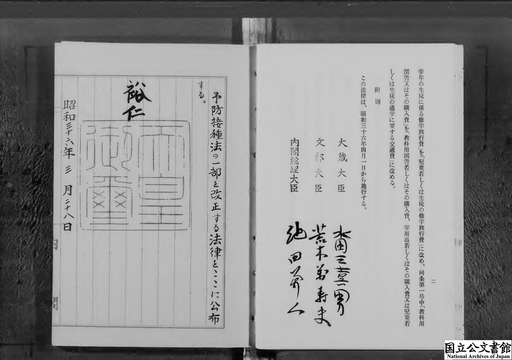 二
学年の生徒に係る修学旅行費」を「児童若しくは生徒の修学旅行費」に改め、同条第一号中「教科用
図書又はその購入費」を「教科用図書若しくはその購入費、学用品若しくはその購入費又は児童若
しくは生徒の通学に要する交通費」に改める。
附則
この法律は、昭和三十六年四月一日から施行する。
大蔵大臣 水田三喜男
文部大臣 荒木萬寿夫
内閣総理大臣 池田勇人
予防接種法の一部を改正する法律をここに公布
する。
裕仁
天皇御璽
昭和三十六年三月二十八日
国立公文書館
National Archives of Japan